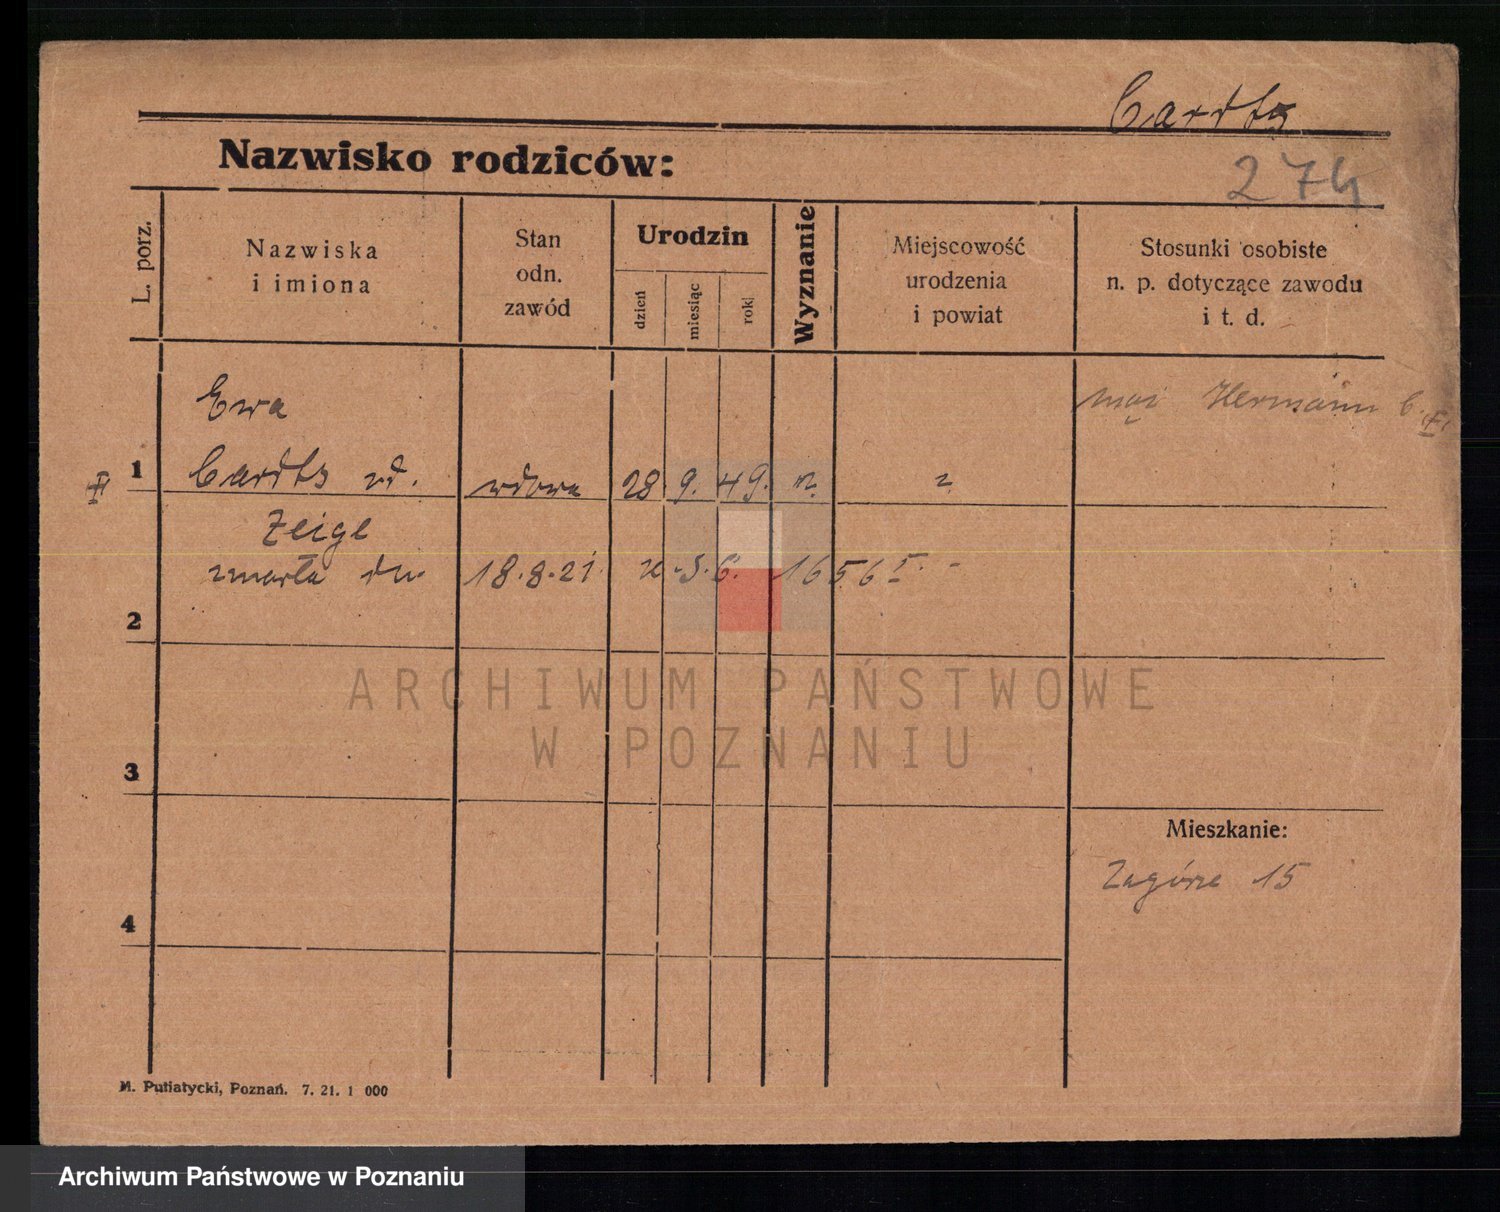 Cardtz
Nazwisko rodziców:
274
L. porz.
Nazwiska
i imiona
Stan
odn.
zawód
Urodzin
dzień
miesiąc
rok
Wyznanie
Miejscowość
urodzenia
i powiat
Stosunki osobiste
n. p. dotyczące zawodu
i t. d.
Ewa
mąż Hermann C.
1
wdowa 28. 9. 49. ?
Zeige
zmarła dn. 18.8.21
2
ARCHIWUM PAŃSTWOWE
W POZNANIU
3
Mieszkanie:
Zagórze 15
4
M. Putiatycki, Poznań. 7. 21. 1 000
Archiwum Państwowe w Poznaniu